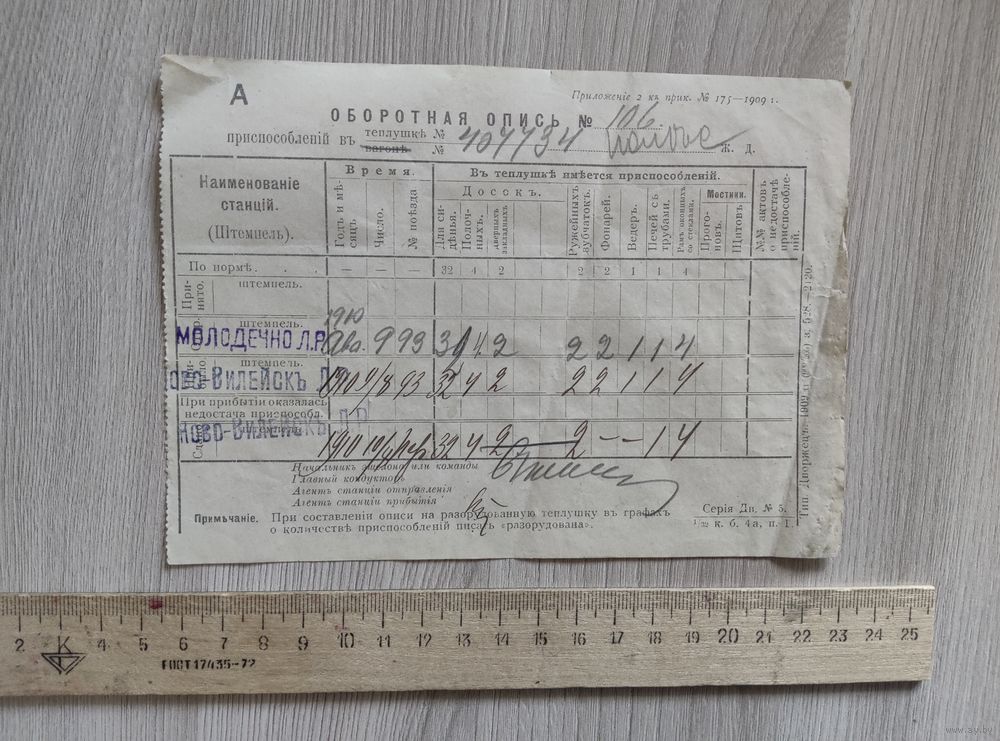 А
Приложеніе 2 къ прик. № 175—1909 г.
ОБОРОТНАЯ ОПИСЬ № 106.
приспособленій въ теплушкѣ № вагонѣ № 407734 Ж. Д.
Наименованіе станцій. (Штемпель).
Время.
Годъ и мѣсяцъ.
Число.
№ поѣзда
Въ теплушкѣ имѣется приспособленій.
Досокъ.
Для сидѣнья.
Полочныхъ.
дверныхъ закладныхъ
Ружейныхъ зубчатокъ.
Фонарей.
Ведеръ.
Печей съ трубами.
Рамъ оконныхъ со стеклами.
Мостики.
Прогоновъ.
Щитовъ.
№№ актовъ о недостачѣ приспособленій.
По нормѣ. . . — — — 32 4 2 2 2 1 1 4
Принято.
штемпель.
штемпель.
1910
МОЛОДЕЧНО Л.Р. Авг. 9 93 31 4 2 2 2 1 1 4
штемпель.
НОВО-ВИЛЕЙСКЪ 1910 9/8 93 32 4 2 2 2 1 1 4
При прибытіи оказалась недостача приспособл.
штемпель.
НОВО-ВИЛЕЙСКЪ Л.Р. 1910 32 4 2 2 – – 1 4
Начальникъ эшелона или команды
Главный кондукторъ
Агентъ станціи отправленія
Агентъ станціи прибытія
Примѣчаніе. При составленіи описи на разорудованную теплушку въ графахъ
о количествѣ приспособленій писать «разорудована».
Серія Дв. № 5.
1/32 к. б. 4а, п. 1.
Тип. Дворжецъ. 1909 г.
2 К 4 5 6 7 8 9 10 11 12 13 14 15 16 17 18 19 20 21 22 23 24 25
ГОСТ 17435-72
www.ay.by